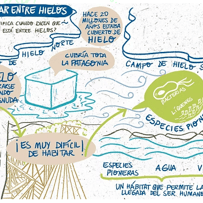 AR ENTRE HIELOS
NIFICA CUANDO DICEN QUE
ESTÁ ENTRE HIELOS?
HACE 20
MILLONES DE
AÑOS ESTABA
CUBIERTO DE
HIELO
DE HIELO NORTE
CUBRÍA TODA
LA PATAGONIA
CAMPO DE HIELO S
¡ES MUY DIFÍCIL
DE HABITAR!
ESPECIES PION
ESPECIES
PIONERAS
AGUA
UN HÁBITAT QUE PERMITE LA
LLEGADA DEL SER HUMAN